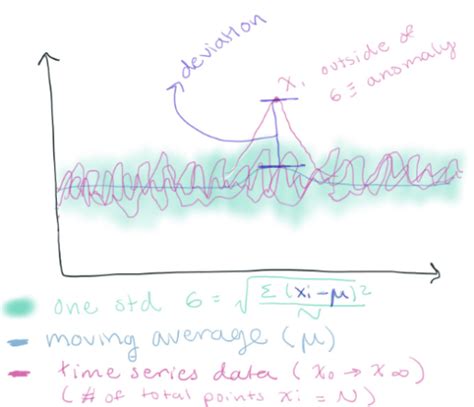 deviation
xi outside of
6 ≡ anomaly
one std 6 = √ Σ(xi-μ)² / N
moving average (μ)
time series data (x0 → x∞)
(# of total points xi = N)